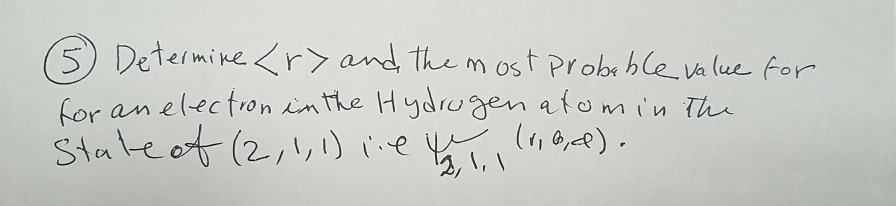 (5) Determine <r> and the most probable value for
for an electron in the Hydrogen atom in The
State of (2,1,1) i.e ψ2,1,1 (r,θ,φ).